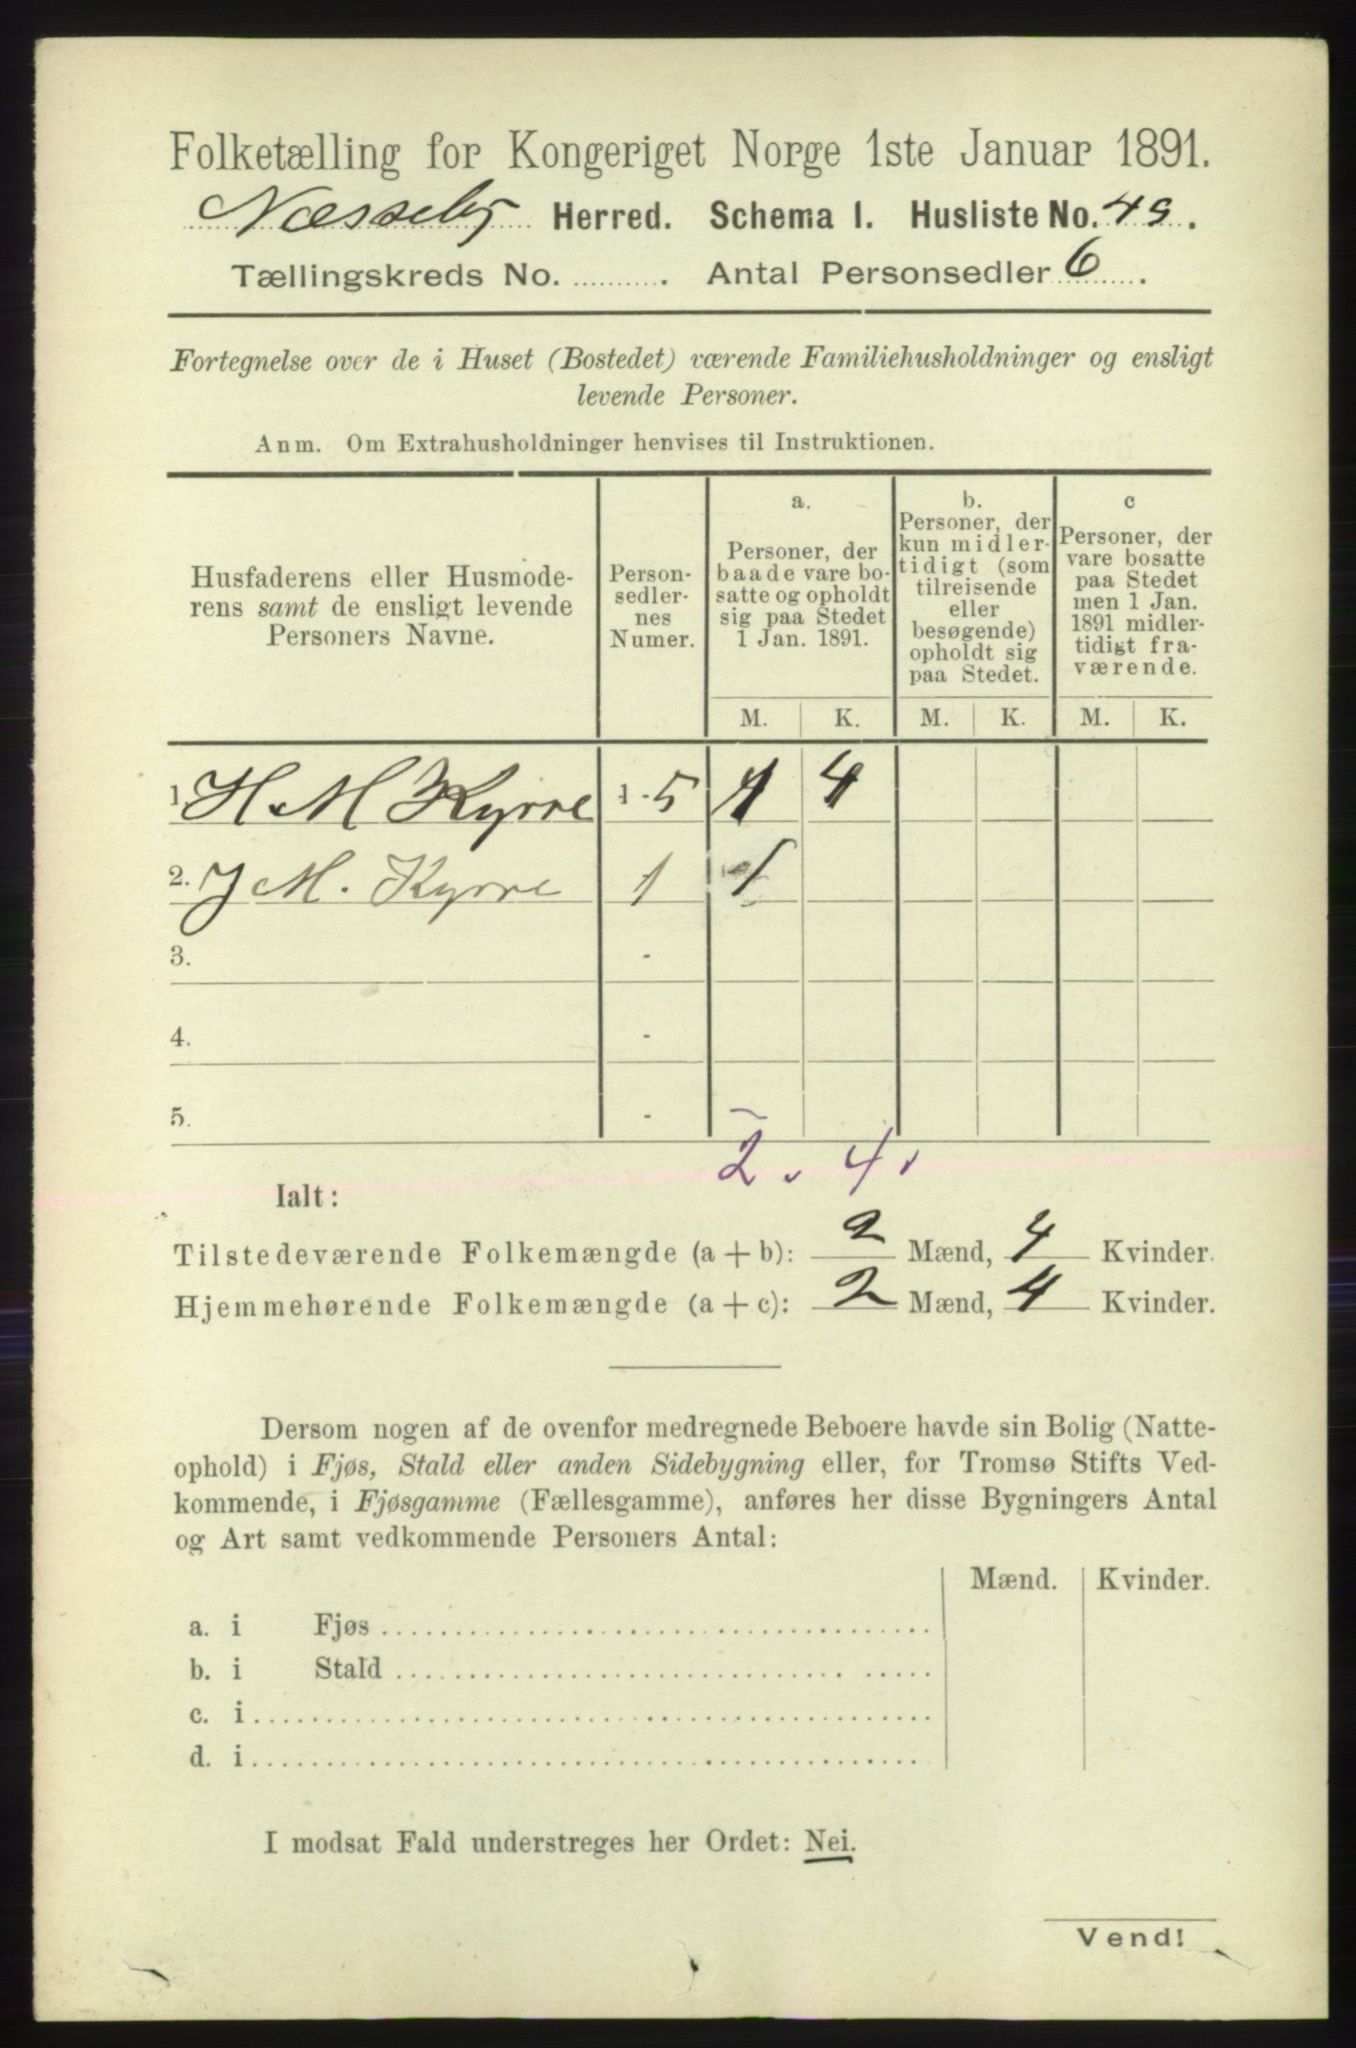 Folketælling for Kongeriget Norge 1ste Januar 1891.
Næsseby Herred. Schema I. Husliste No. 49.
Tællingskreds No. .......... . Antal Personsedler 6 .
Fortegnelse over de i Huset (Bostedet) værende Familiehusholdninger og ensligt
levende Personer.
Anm. Om Extrahusholdninger henvises til Instruktionen.
Husfaderens eller Husmode-
rens samt de ensligt levende
Personers Navne.
Person-
sedler-
nes
Numer.
a.
Personer, der
baade vare bo-
satte og opholdt
sig paa Stedet
1 Jan. 1891.
b.
Personer, der
kun midler-
tidigt (som
tilreisende
eller
besøgende)
opholdt sig
paa Stedet.
c
Personer, der
vare bosatte
paa Stedet
men 1 Jan.
1891 midler-
tidigt fra-
værende.
M. K. M. K. M. K.
1. H. M Kyrre 1 - 5 1 4
2. J M. Kyrre 1 1
3. -
4. -
5. -
2. 4.
Ialt:
Tilstedeværende Folkemængde (a + b): 2 Mænd, 4 Kvinder.
Hjemmehørende Folkemængde (a + c): 2 Mænd, 4 Kvinder.
Dersom nogen af de ovenfor medregnede Beboere havde sin Bolig (Natte-
ophold) i Fjøs, Stald eller anden Sidebygning eller, for Tromsø Stifts Ved-
kommende, i Fjøsgamme (Fællesgamme), anføres her disse Bygningers Antal
og Art samt vedkommende Personers Antal:
Mænd. Kvinder.
a. i Fjøs
b. i Stald
c. i
d. i
I modsat Fald understreges her Ordet: Nei.
Vend!